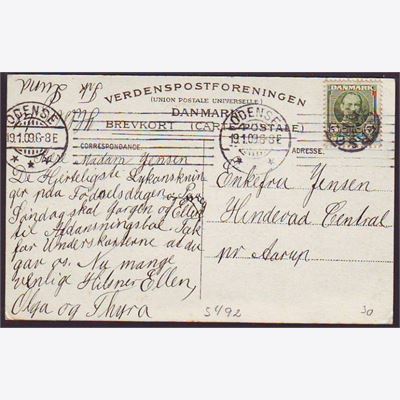 VERDENSPOSTFORENINGEN
(UNION POSTALE UNIVERSELLE)
DANMARK
BREVKORT (CARTE POSTALE)
CORRESPONDANCE.
ADRESSE.
ODENSE
19.1.09.6-8E
ODENSE
19.1.09.6-8E
DANMARK
Madam Jensen
De Hjerteligste Lykønsknin
ger paa Fødselsdagen
Søndag skal Jørgen og Ellen
til Afdansningsbal Tak
for Underskørterne at du
gav os. Nu mange
venlige Hilsner Ellen,
Olga og Thyra
Enkefru Jensen
Hindevad Central
pr Aarup
5492
30